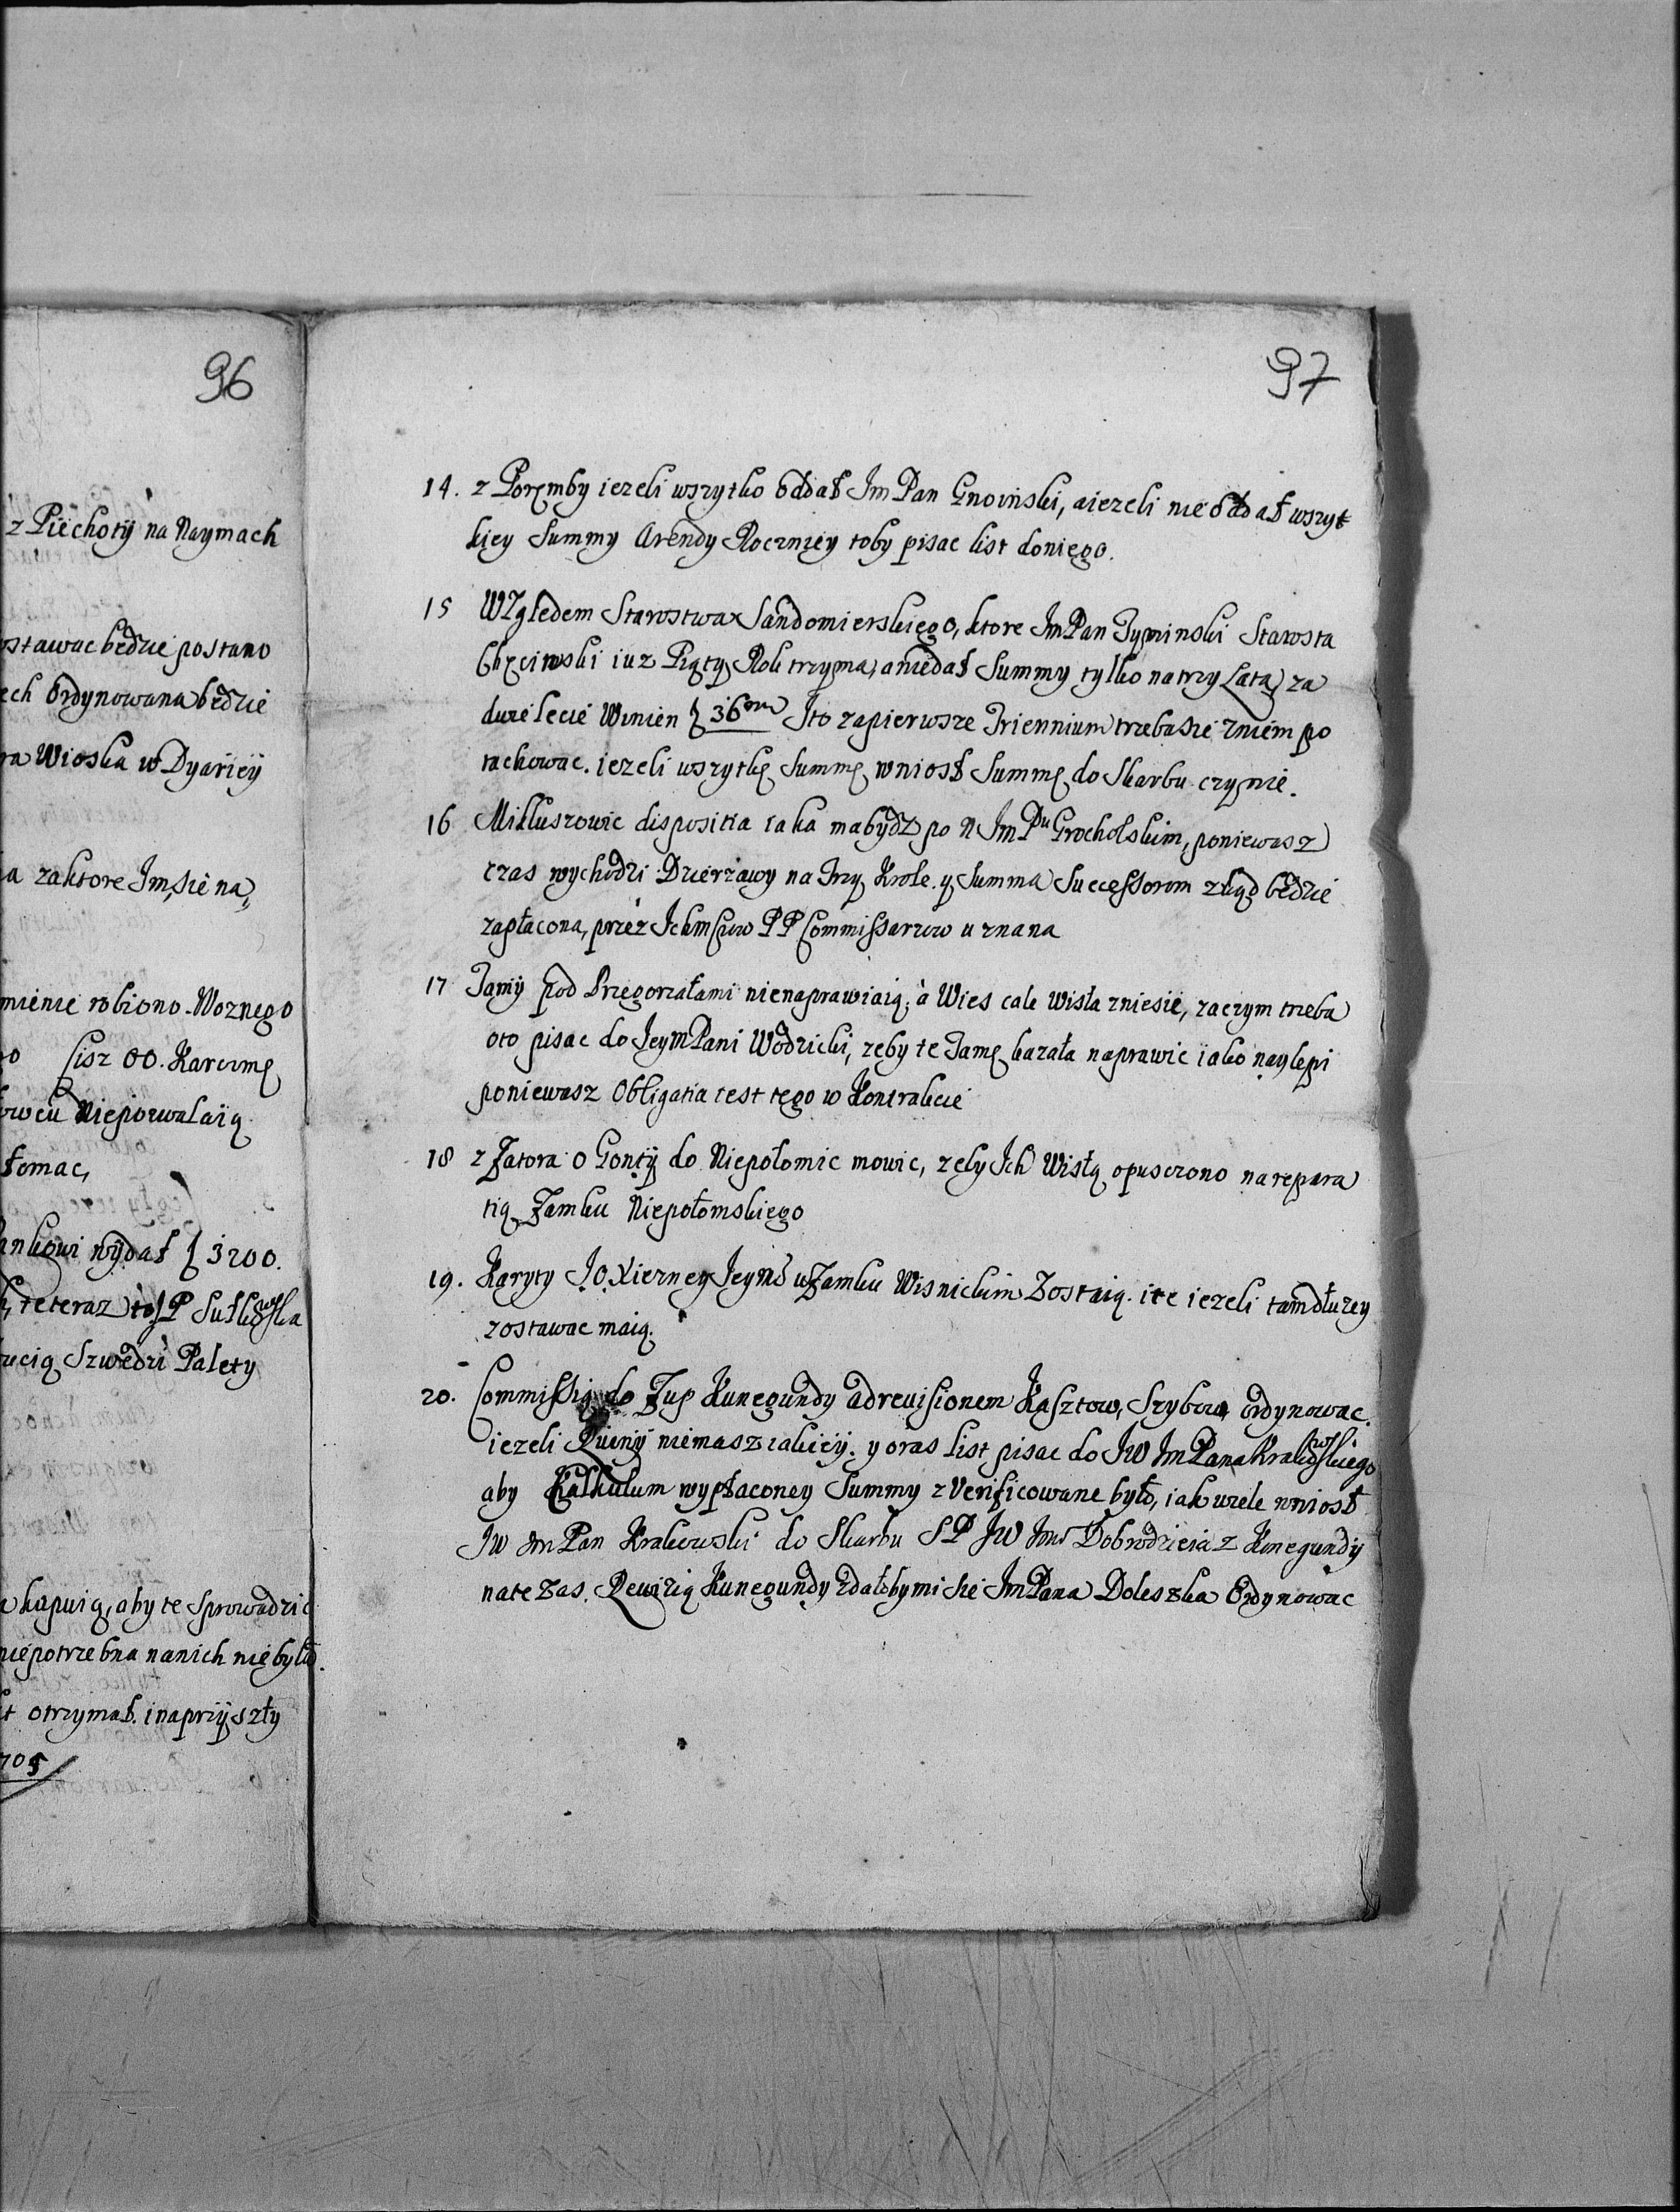 96
z Piechotÿ na Naymach
ostawac będzie postano
ech Ordynowana będzie
ra Wioska w Dyarieÿ
a zaktore Jm, sie na„
mienie robiono. Woznego
lisz 00. Karczmę
owcu Niepozwalaią
łomac,
ankowi wÿdał 3200.
te teraz to JP Sułkowska
ucią Szwedzi Palety
kapuią, aby te Sprowadzic
niepotrzebna nanich niebyła.
t otrzymał. i naprzÿszły
705
97
14. z Poręmby iezeli wszytko oddał Jm Pan Gnoinski, aiezeli nieoddał wszyt
kięy Summy Arendy Roczniey toby pisac list doniego.
15 Względem Starostwa Sandomierskiego, ktore JmPan Tyminski Starosta
Chęcinski iuz Piąty Rok trzyma, aniedał Summy tylko natrzy Lata, za
dwielecie Winien 36m Ito zapierwsze Triennium trzebasie zniem po
rachowac. iezeli wszytkę Summę wniosł Summę do Skarbu czynie.
16 Mikluszowic dispositia iaka mabÿdz po N JmPu Grocholskim, poniewasz
czas wychodzi Dzierzawy na Trzy Krole. y Summa Successorom zkąd będzie
zapłacona, przez Ichmsciow PP Commissarzow uznana
17 Tamÿ pod Przegorzałami nienaprawiaią, à Wies cale Wisła zniesie, zaczym trzeba
oto pisac do JeymPani Wodzicki, zeby te Tamę kazała naprawic iako naylepi
poniewasz Obligatia iest tego w Kontrakcie
18 z Zatora o Gontÿ do Niepołomic mowic, zeby Ich Wisłą opusczono na repara
tią Zamku Niepołomskiego
19. Karyty J.O. Xiezney Jeymś w Zamku Wisnickim Zostaią. ite iezeli tam dłuzey
zostawac maią.
20. Commissią do Zup Kunegundy ad revisionem Kasztow, Szybow ordynowac.
iezeli Ruinÿ niemasz iakieÿ. y oras list pisac do JW JmPana Krakowskiego
aby Kalkulum wypłaconey Summy zVerificowane było, iak wiele wniosł
JW Jm Pan Krakowski do Skarbu SP JW Jmś Dobrodzieia z Kunegundy
nate zas. Rewizią Kunegundy zdałobymi sie JmPana Doleszka Ordynowac